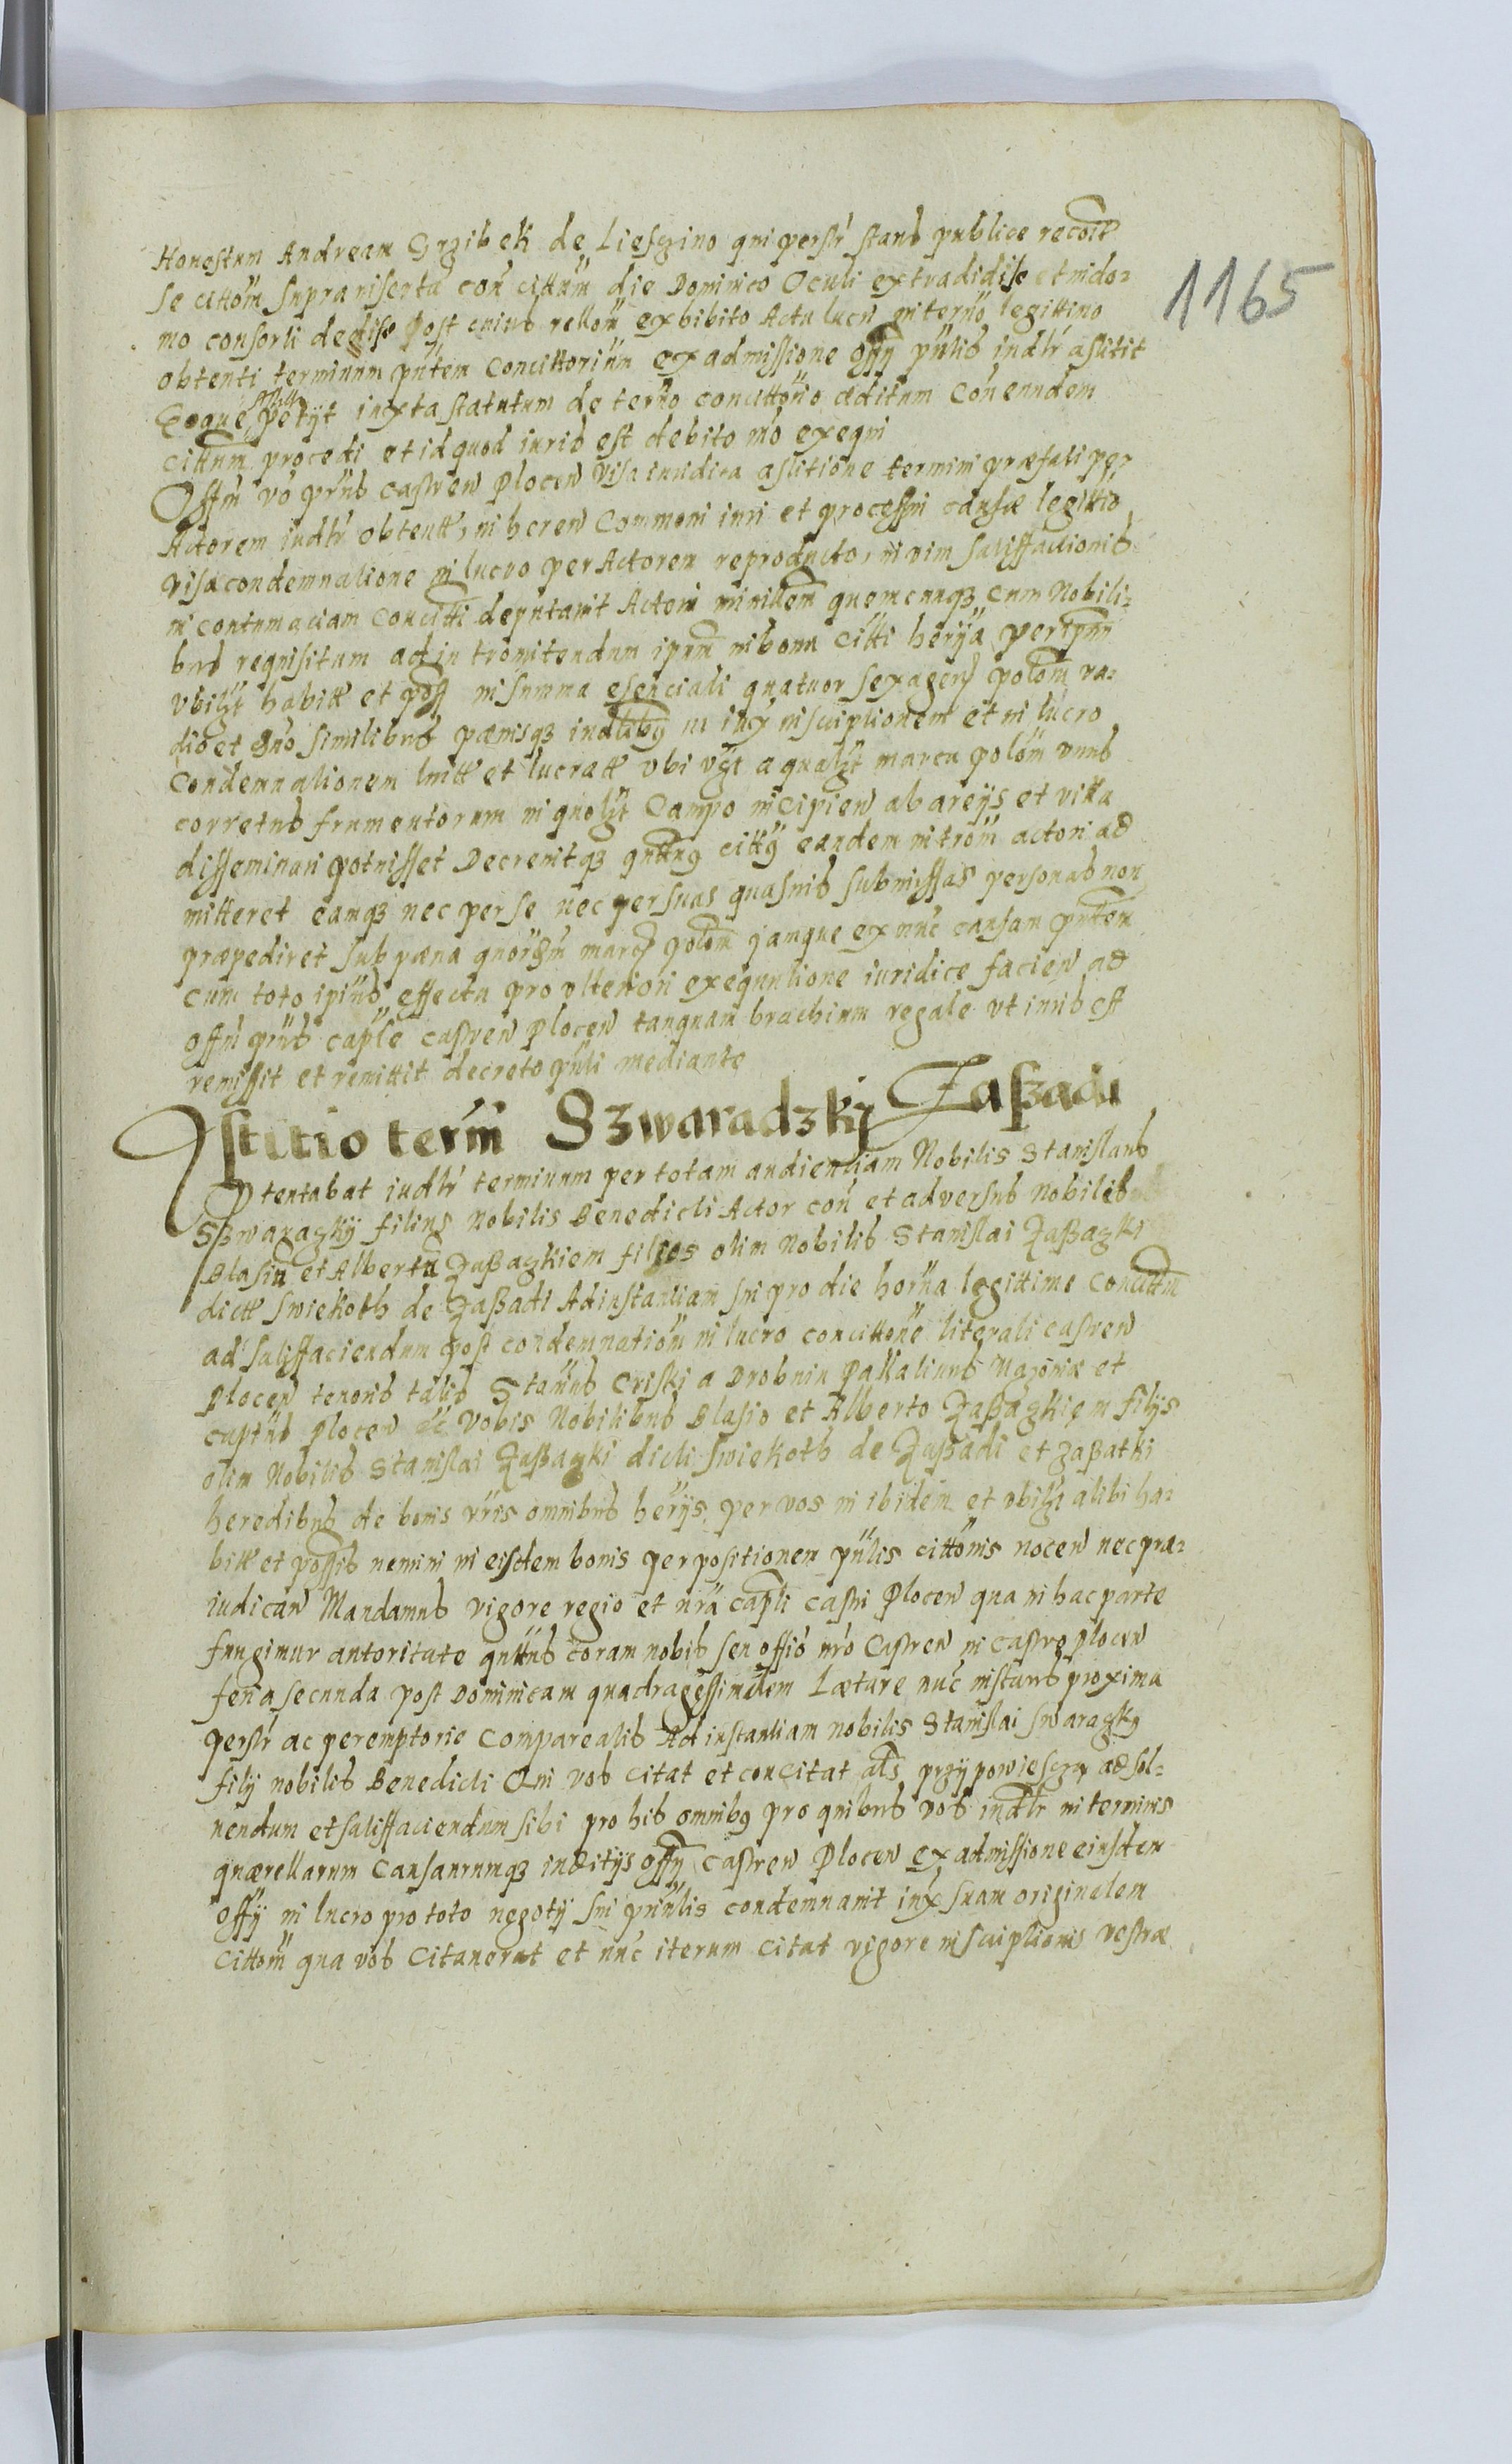 Honestum Andream Grzibek de Lieszino qui persr stans publice recoit
se cittom supra riserta con cittum die Dominico Oculi extradidise et in do⸗
mo consorti dedise Post cuius rellom exhibito Actu lucri in terno legittimo
obtenti terminum pntem Concittorium ex admissione offy pntis iudlr astitit
Eoque petyt iuxta statutum de terno concittorio æditum Con eundem
cittum procedi et id quod iuris est debito mo exequi
Offm vo pns castren Plocen visa iuridica astitione termini præfati per
Actorem iudlr obtent, inheren Commoni iuri et processui causæ legittio
visa condemnatione in lucro per Actorem reproducto, in vim satisfactionis
in contumaciam Concitti deputavit Actori minillem quemcunq3 cum Nobili⸗
bus requisitum ad intromitendum ipsum in bona Citti herya per ipsum
vbilzt habitt et poss in summa esenciali quatuor sexagen polom va⸗
dio et dno similibus pænisq3 iudlibus in iux inscriptionem et in lucro
Condemnationem luitt et lucratt vbi vzt a qualzt marca polom vnus
corretus frumentorum in quolzt Campo incipien ab areys et villa
disseminari potuisset Decrevitq3 qntus cittus eandem introm actori ad
mitteret eamq3 nec per se nec per suas quasvis submissas personas non
præpediret sub pæna quorsdm marcs polom jamque ex nunc causam pntem
cum toto ipius effectu pro vlteriori exequutione iuridice facien ad
offm prns caple castren Plocen tanquam brachium regale vt iuris est
remissit et remittit decreto pnti mediante
Astitio term Szwaradzkj Zaßadi
Attentabat iudlr terminum per totam audientiam Nobilis Stanislaus
Sßwarazky filius Nobilis Benedicti Actor con et adversus Nobiles
Blasiu et Albertu Zaßazkiem filios olim Nobilis Stanislai Zaßazki
dict swiekoth de Zaßadi Ad instantiam sui pro die horna legittime Concittm
ad satisfaciendum post condemnatiom in lucro concittone literali castren
Plocen tenoris talis Stanns Criski a Drobnin Pallatinus Mazoviæ et
captus Plocen etc Vobis Nobilibus Blasio et Alberto Zaßazkiem filys
olim Nobilis Stanislai Zaßazki dicti swiekoth de Zaßadi et Zaßatki
heredibus de bonis vris omnibus herys per vos in ibidem et vbilzt alibi ha⸗
bitt et possis nemini in eisdem bonis per positionem pntis cittonis nocen nec præ⸗
iudican Mandamus vigore regio et nra capli castri Plocen qua in hac parte
fungimur autoritate quttus coram nobis seu offio nro Castren in castro Plocen
feria secunda post Dominicam quadragessimalem Lætare nunc instans proxima
persr ac peremptorie compareatis Ad instantiam nobilis Stanislai swarazky
fily nobilis Benedicti Qui vos citat et concitat als przypowiescza ad sol⸗
vendum et satisfaciendum sibi pro his omnibus pro quibus vos iudlr in terminis
quærellarum Causarumq3 inditys offy Castren Plocen ex admissione eiusdem
offy in lucro pro toto negoty sui prinlis condemnavit iux suam originalem
cittom qua vos Citaverat et nunc iterum citat vigore inscriptionis vestræ
1165